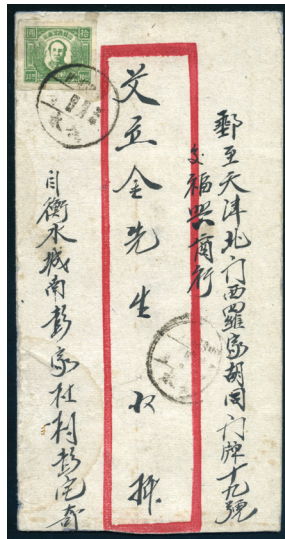 郵至天津北门西羅家胡同门牌十九號
交福興商行
艾亚金先生 收
自衡水城南彭家杜村彭宅寄